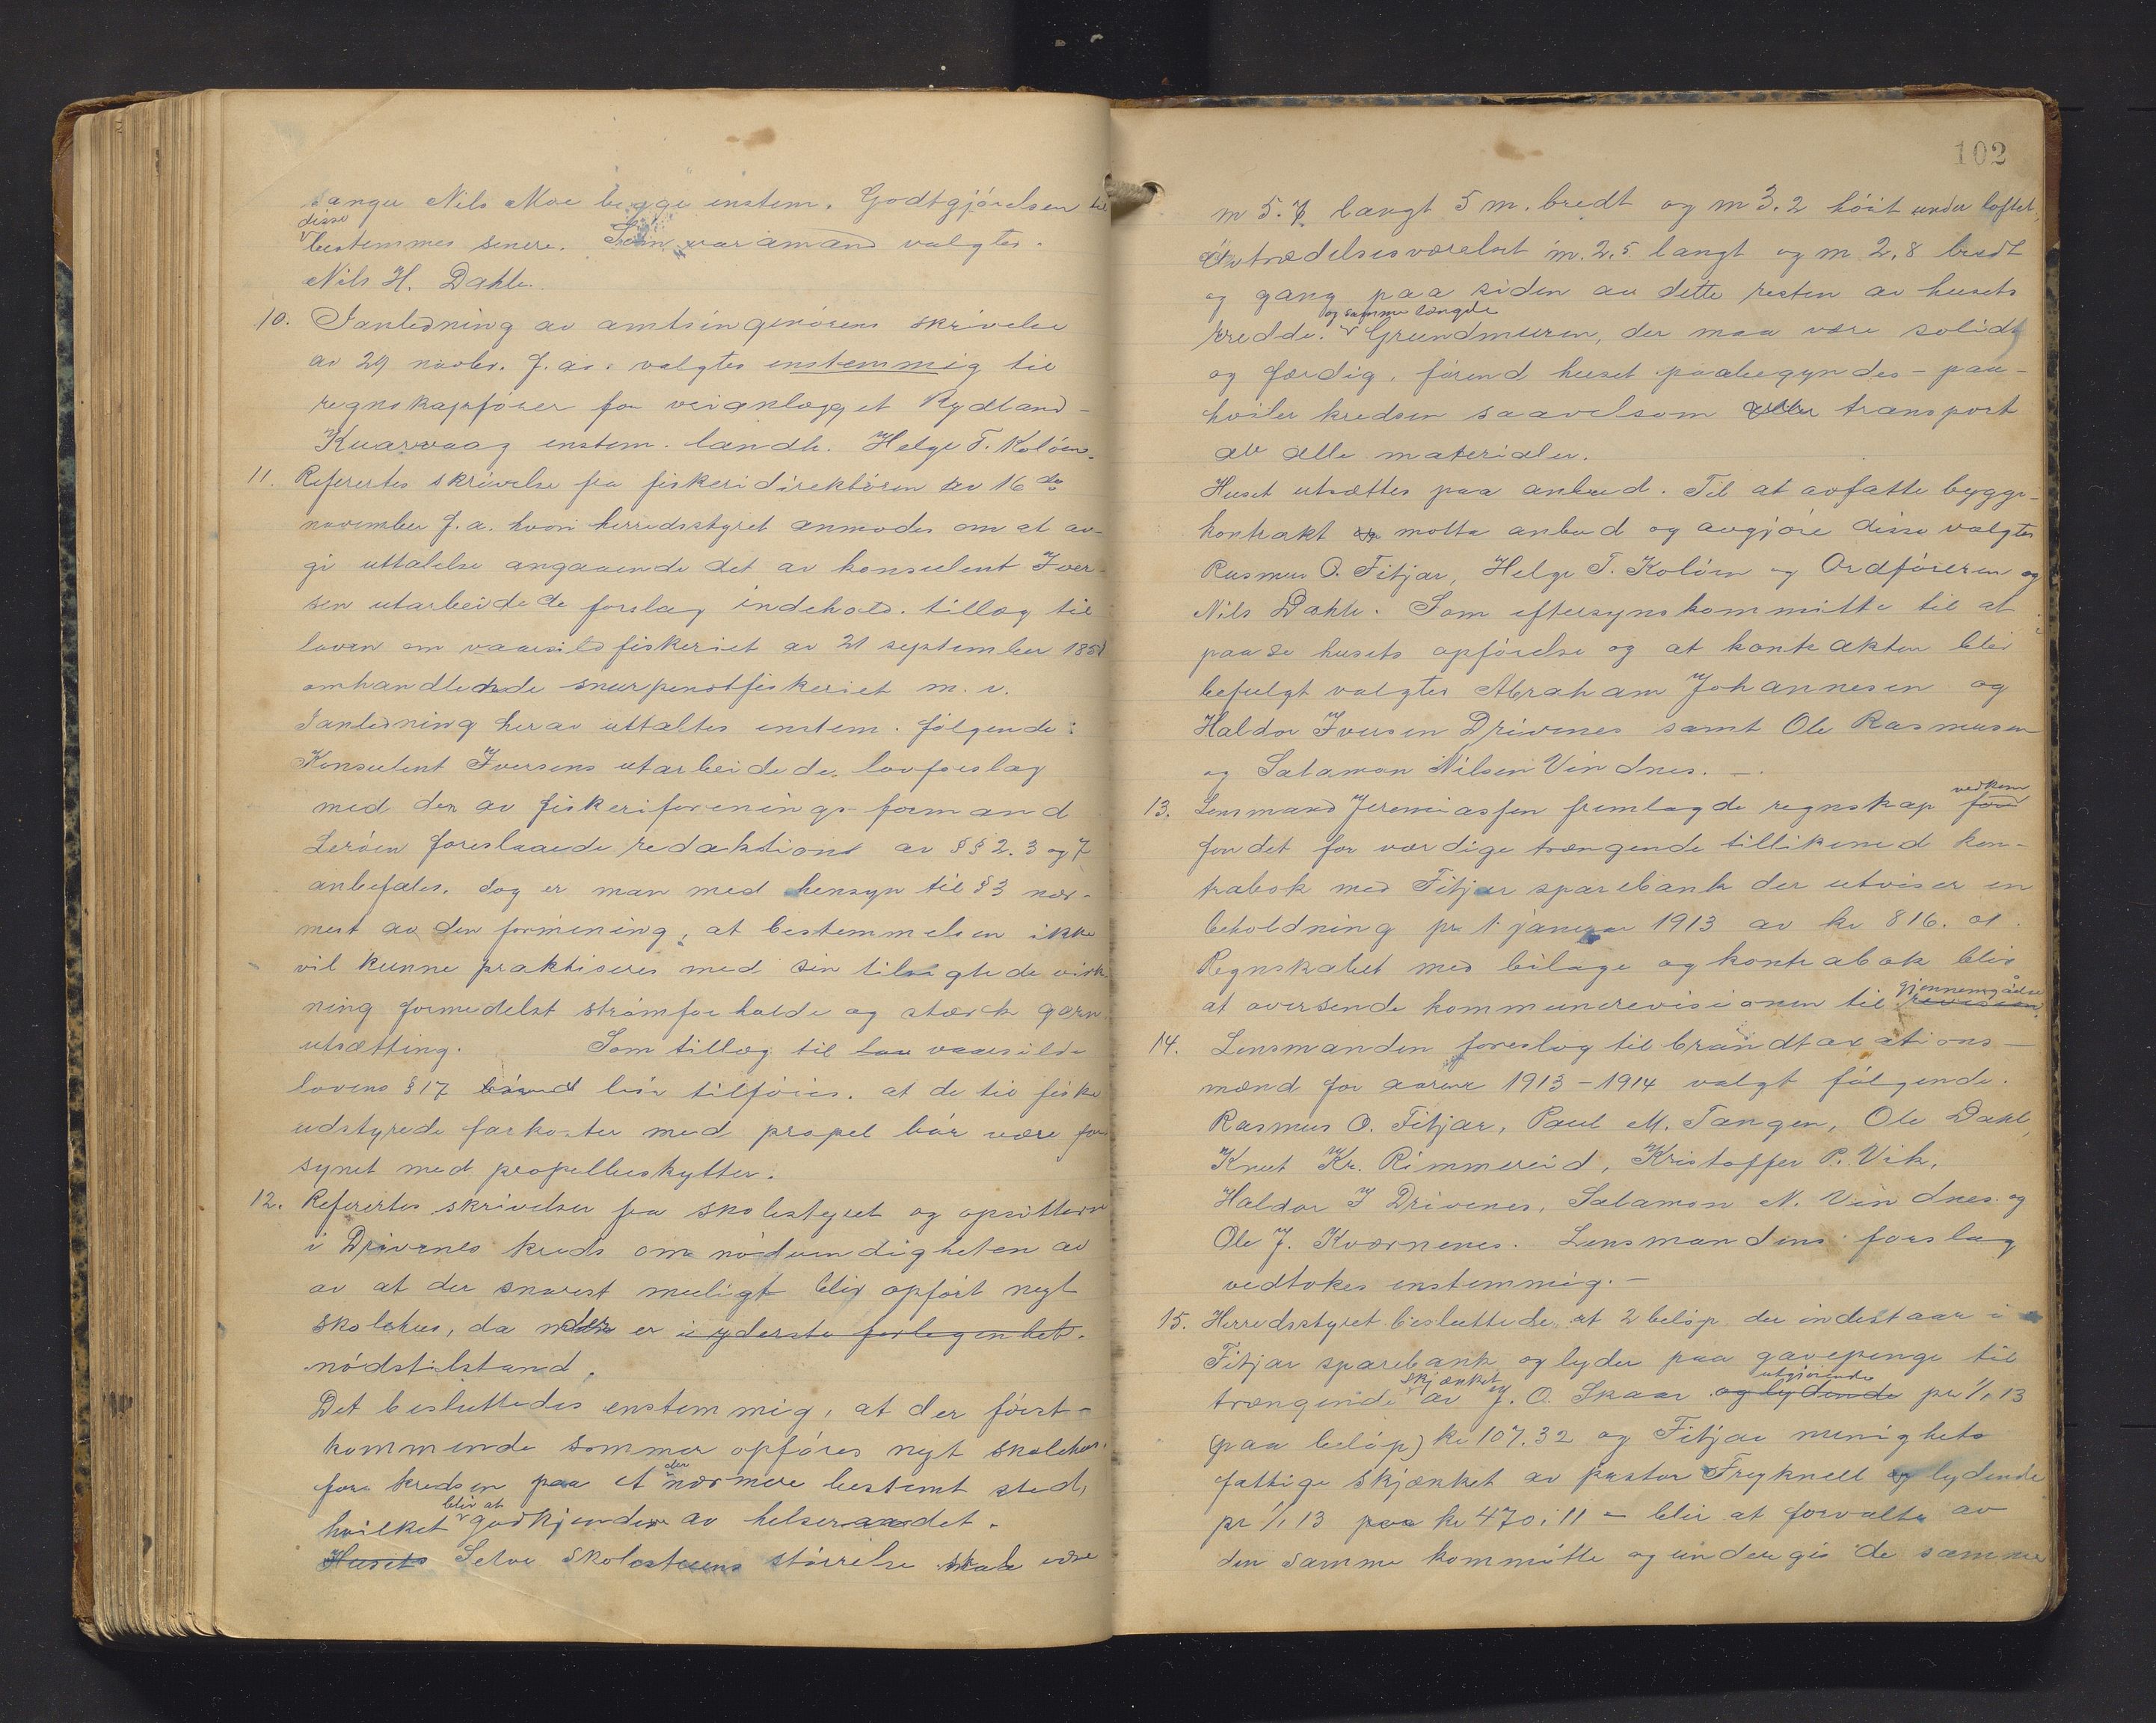 sanger Nils Moe begge enstem. Godtgjörelsen til
disse
bestemmes senere. Som varamand valgtes.
Nils H. Dahle.
10. Ianledning av amtsingeniörens skrivelse
av 29 novbr. f.a. valgtes enstemmig til
regnskapsförer for veianlægget Rydland-
Kvarvaag enstem. landh. Helge T. Kolöen.
11. Refertes skrivelse fra fiskeridirektören av 16de
november f.a. hvori herredsstyret anmodes om at av-
gi uttalelse angaaende det av konsulent Iver-
sen utarbeidede forslag indehold. tillæg til
loven om vaarsildfiskeriet av 21 september 1851
omhandlende snurpenotfiskeriet m.v.
Ianledning herav uttaltes enstem. følgende:
Konsulent Iversens utarbeidede lovforslag
med den av fiskeriforenings formand
Leröen foreslaaede redaktion av §§ 2. 3 og 7
anbefales, dog er man med hensyn til § 3 nær-
mest av den formening, at bestemmelsen ikke
vil kunne praktiseres med sin tilsigtede virk
ning formedelst strömforholde og stærk garn
utsætting. Som tillæg til lov vaarsilds
lovens § 17 bör tilföies. at de til fiske
udstyrede farkoster med propel bör være for
synet med propelbeskytter.
12. Refertes skrivelser fra skolestyret og opsitterne
i Drivenes kreds om nödvendigheten av
av at der snarest muligt blir opfört nyt
skolehus, da der er i yderste forlegenhet.
nödstilstand.
Det besluttedes enstemmig, at der först-
kommende sommer opföres nyt skolehus
for kredsen paa et der nærmere bestemt sted,
blir at
hvilket godkjendes av helseraadet.
Husets Selve skolestuens störrelse skal være
102
m 5.7 langt 5 m. bredt og m 3.2 höit under loftet,
Avtrædelsesværelset m. 2,5 langt og m 2,8 bredt
og gang paa siden av dette resten av husets
og samme længde
bredde. Grundmuren, der maa være solidt
og færdig, förend huset paabegyndes - paa-
hviler kredsen saavelsom transport
av alle materialer.
Huset utsættes paa anbud. Til at avfatte bygge-
kontrakt motta anbud og avgjöre disse valgtes
Rasmus O. Fitjar, Helge T. Kolöen og Ordföreren og
Nils Dahle. Som eftersynskommitte til at
paase husets opförelse og at kontrakten blir
befulgt valgtes Abraham Johannesen og
Haldor Iversen Drivenes samt Ole Rasmusen
og Salamon Nilsen Vindnes. -
vedkom
13. Lensmand Jeremiassen fremlagde regnskap for
fondet for værdige trængende tillikemed kon-
trabok med Fitjar sparebank der utviser en
beholdning pr 1 januar 1913 av kr 816. 01.
Regnskabet med bilage og kontrabok blir
gjennemgåelse
at oversende kommunerevisionen til revision.
14. Lensmanden foreslog til brandtaxations-
mænd for aarene 1913-1914 valgt følgende.
Rasmus O. Fitjar, Paul M. Tangen, Ole Dahl,
Knut Kr. Rimmereid, Kristoffer P. Vik,
Haldor I Drivenes, Salamon N. Vindnes og
Ole J. Kværnenes. Lensmandens forslag
vedtokes enstemmig. -
15. Herredsstyret besluttede, at 2 belöp der indestaar i
Fitjar sparebank og lyder paa gavepenge til
skjænket utgjörende
trængende av J. O. Skaar og lydende pr 1/1 13
(paa belöp) kr 107.32 og Fitjar menighets
fattige skjænket av pastor Freyknell og lydende
pr 1/1 13 paa kr 470.11 - blir at forvalte av
den samme kommitte og undergis de samme